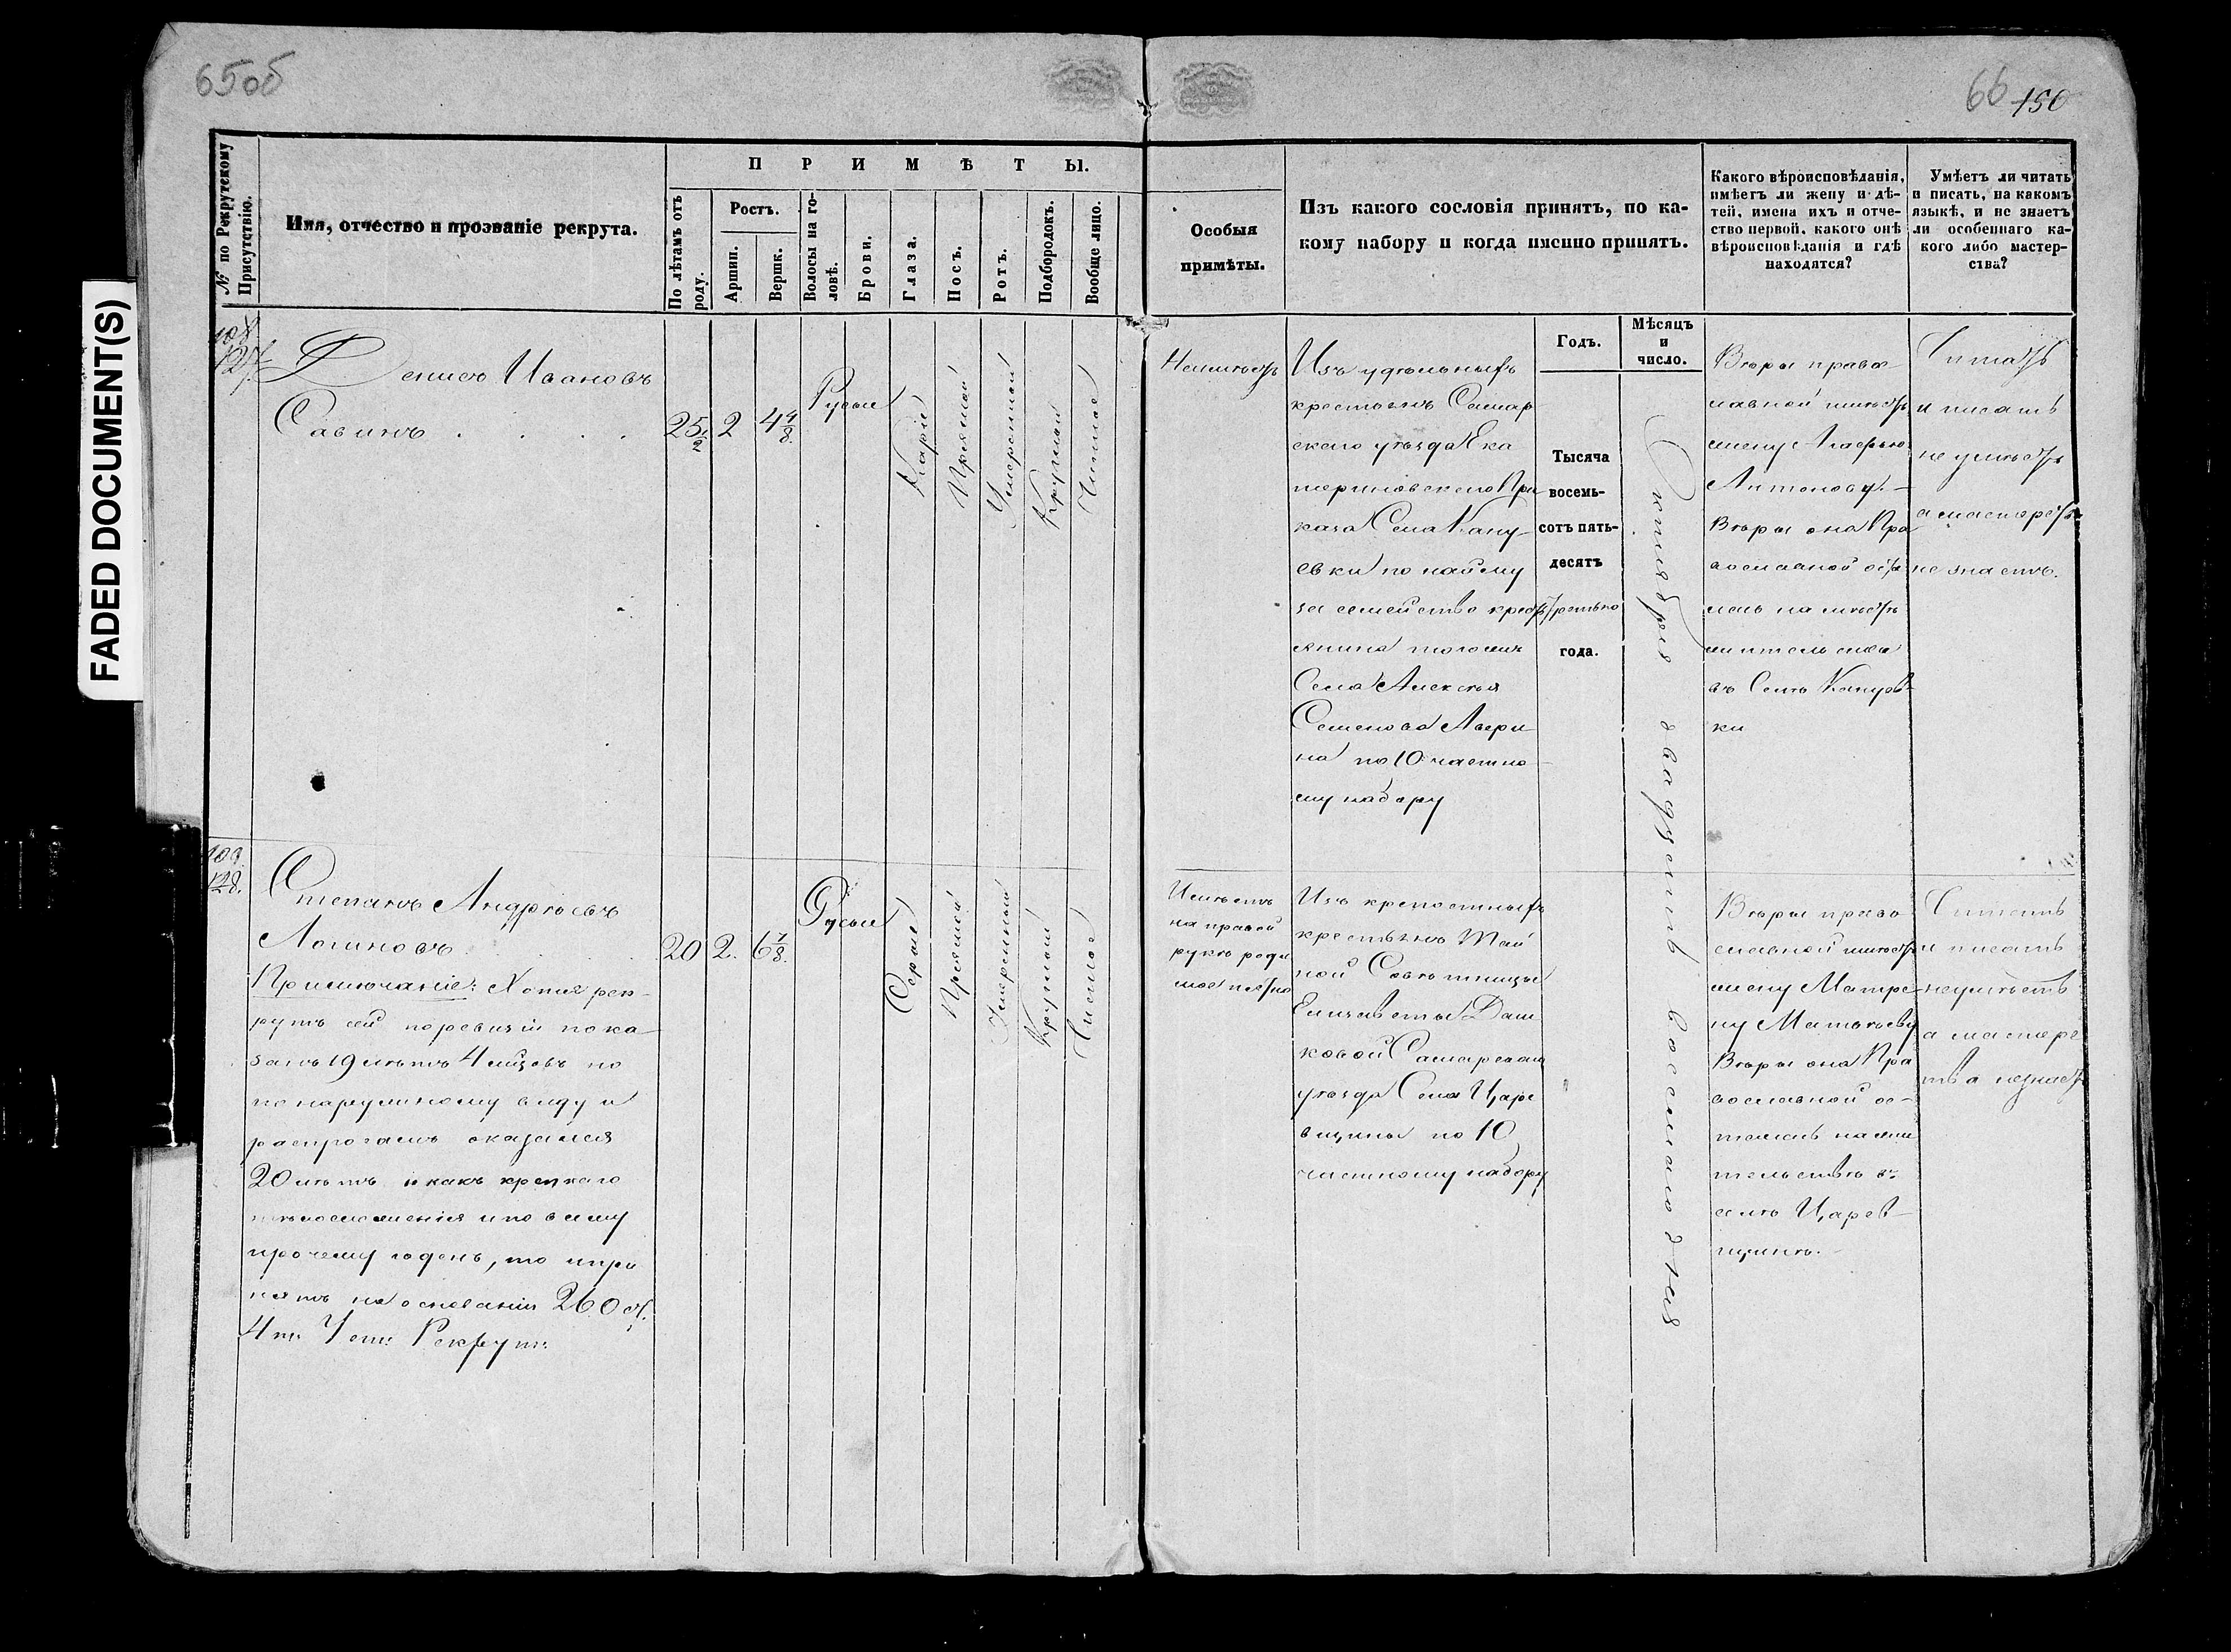 65об
66 150
FADED DOCUMENT(S)
№ по Рекрутскому Присутствію.
Имя, отчество и прозваніе рекрута.
ПРИМѢТЫ.
По лѣтамъ отъ роду.
Ростъ.
Аршин.
Вершк.
Волосы на головѣ.
Брови.
Глаза.
Носъ.
Ротъ.
Подбородокъ.
Вообще лицо.
Особыя
примѣты.
Изъ какого сословія принятъ, по ка-
кому набору и когда именно принятъ.
Какого вѣроисповѣданія,
имѣетъ ли жену и дѣ-
тей, имена ихъ и отче-
ство первой, какого онѣ
вѣроисповѣданія и гдѣ
находятся?
Умѣетъ ли читать
и писать, на какомъ
языкѣ, и не знаетъ
ли особеннаго ка-
кого либо мастер-
ства?
Годъ.
Мѣсяцъ
и
число.
108
127
Денисъ Ивановъ
Савинъ
25 2 4 4/8
Русые
Каріе
Прямой
Умеренный
Круглый
Чистое
Неимѣетъ
Изъ удѣльныхъ
крестьянъ Самар
скаго уѣзда Ека
териновскаго При
каза Села Кану
евки по найму
за семейство крест
янина тогожъ
Села Алексѣя
Семенова Авери
на по 10 частно
му набору
Тысяча
восемь-
сотъ пять-
десятъ
третьяго
года.
Октября двадцать восьмаго дня
Вѣры право
славной имѣетъ
жену Агафью
Антонову.
Вѣры она Пра
вославной оста
лась на мѣстѣ
жительства
въ Селѣ Кануев
ки
Читать
и писать
не умѣетъ
а мастерств
не знаетъ.
109
128.
Степанъ Андрѣевъ
Логиновъ
20 2. 6 7/8.
Русые
Серые
Прямой
Умеренный
Круглый
Чистое
Примѣчаніе: Хотя рек-
рутъ сей поревизіи пока
занъ 19 лѣтъ 4 мѣцовъ но
по наружному виду и
распросамъ оказался
20 лѣтъ и какъ крепкаго
тѣлосложенія и по всему
прочему годенъ, то и при
нятъ на основаніи 260 ст.
4 т. Уст. Рекрут.
Имѣетъ
на правой
рукѣ роди
мое пятно
Изъ крепостныхъ
крестьянъ Тай
ной Совѣтницы
Елизаветы Даш
ковой Самарскаго
уѣзда Села Царе
вщины по 10
частному набору
Вѣры право
славной имѣетъ
жену Матре
ну Матвѣеву
Вѣры она Пра
вославной ос-
талась на жи
тельствѣ въ
селѣ Царев
щинѣ.
Читать
и писать
неумѣетъ
а мастерс
тва незнаетъ